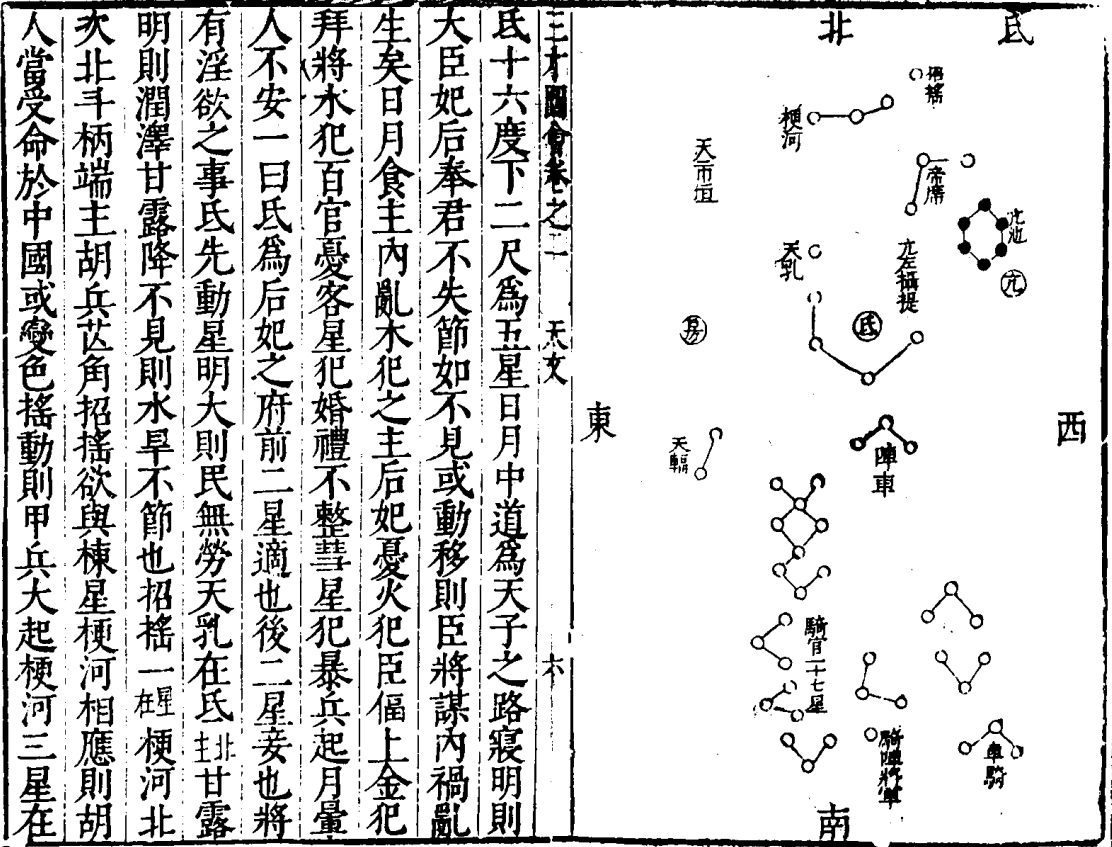 氐
北
招搖
梗河
帝席
天市垣
亢池
亢
亢左攝提
天乳
氐
房
東
西
陣車
天輻
騎官二十七星
騎陣將軍
車騎
南
三才圖會卷之二 天文 六
氐十六度下二尺爲五星日月中道爲天子之路寢明則
大臣妃后奉君不失節如不見或動移則臣將謀內禍亂
生矣日月食主內亂木犯之主后妃憂火犯臣偪上金犯
拜將水犯百官憂客星犯婚禮不整彗星犯暴兵起月暈
人不安一曰氐爲后妃之府前二星適也後二星妾也將
有淫欲之事氐先動星明大則民無勞天乳在氐北主甘露
明則潤澤甘露降不見則水旱不節也招搖一星在梗河北
次北斗柄端主胡兵芒角招搖欲與棟星梗河相應則胡
人當受命於中國或變色搖動則甲兵大起梗河三星在